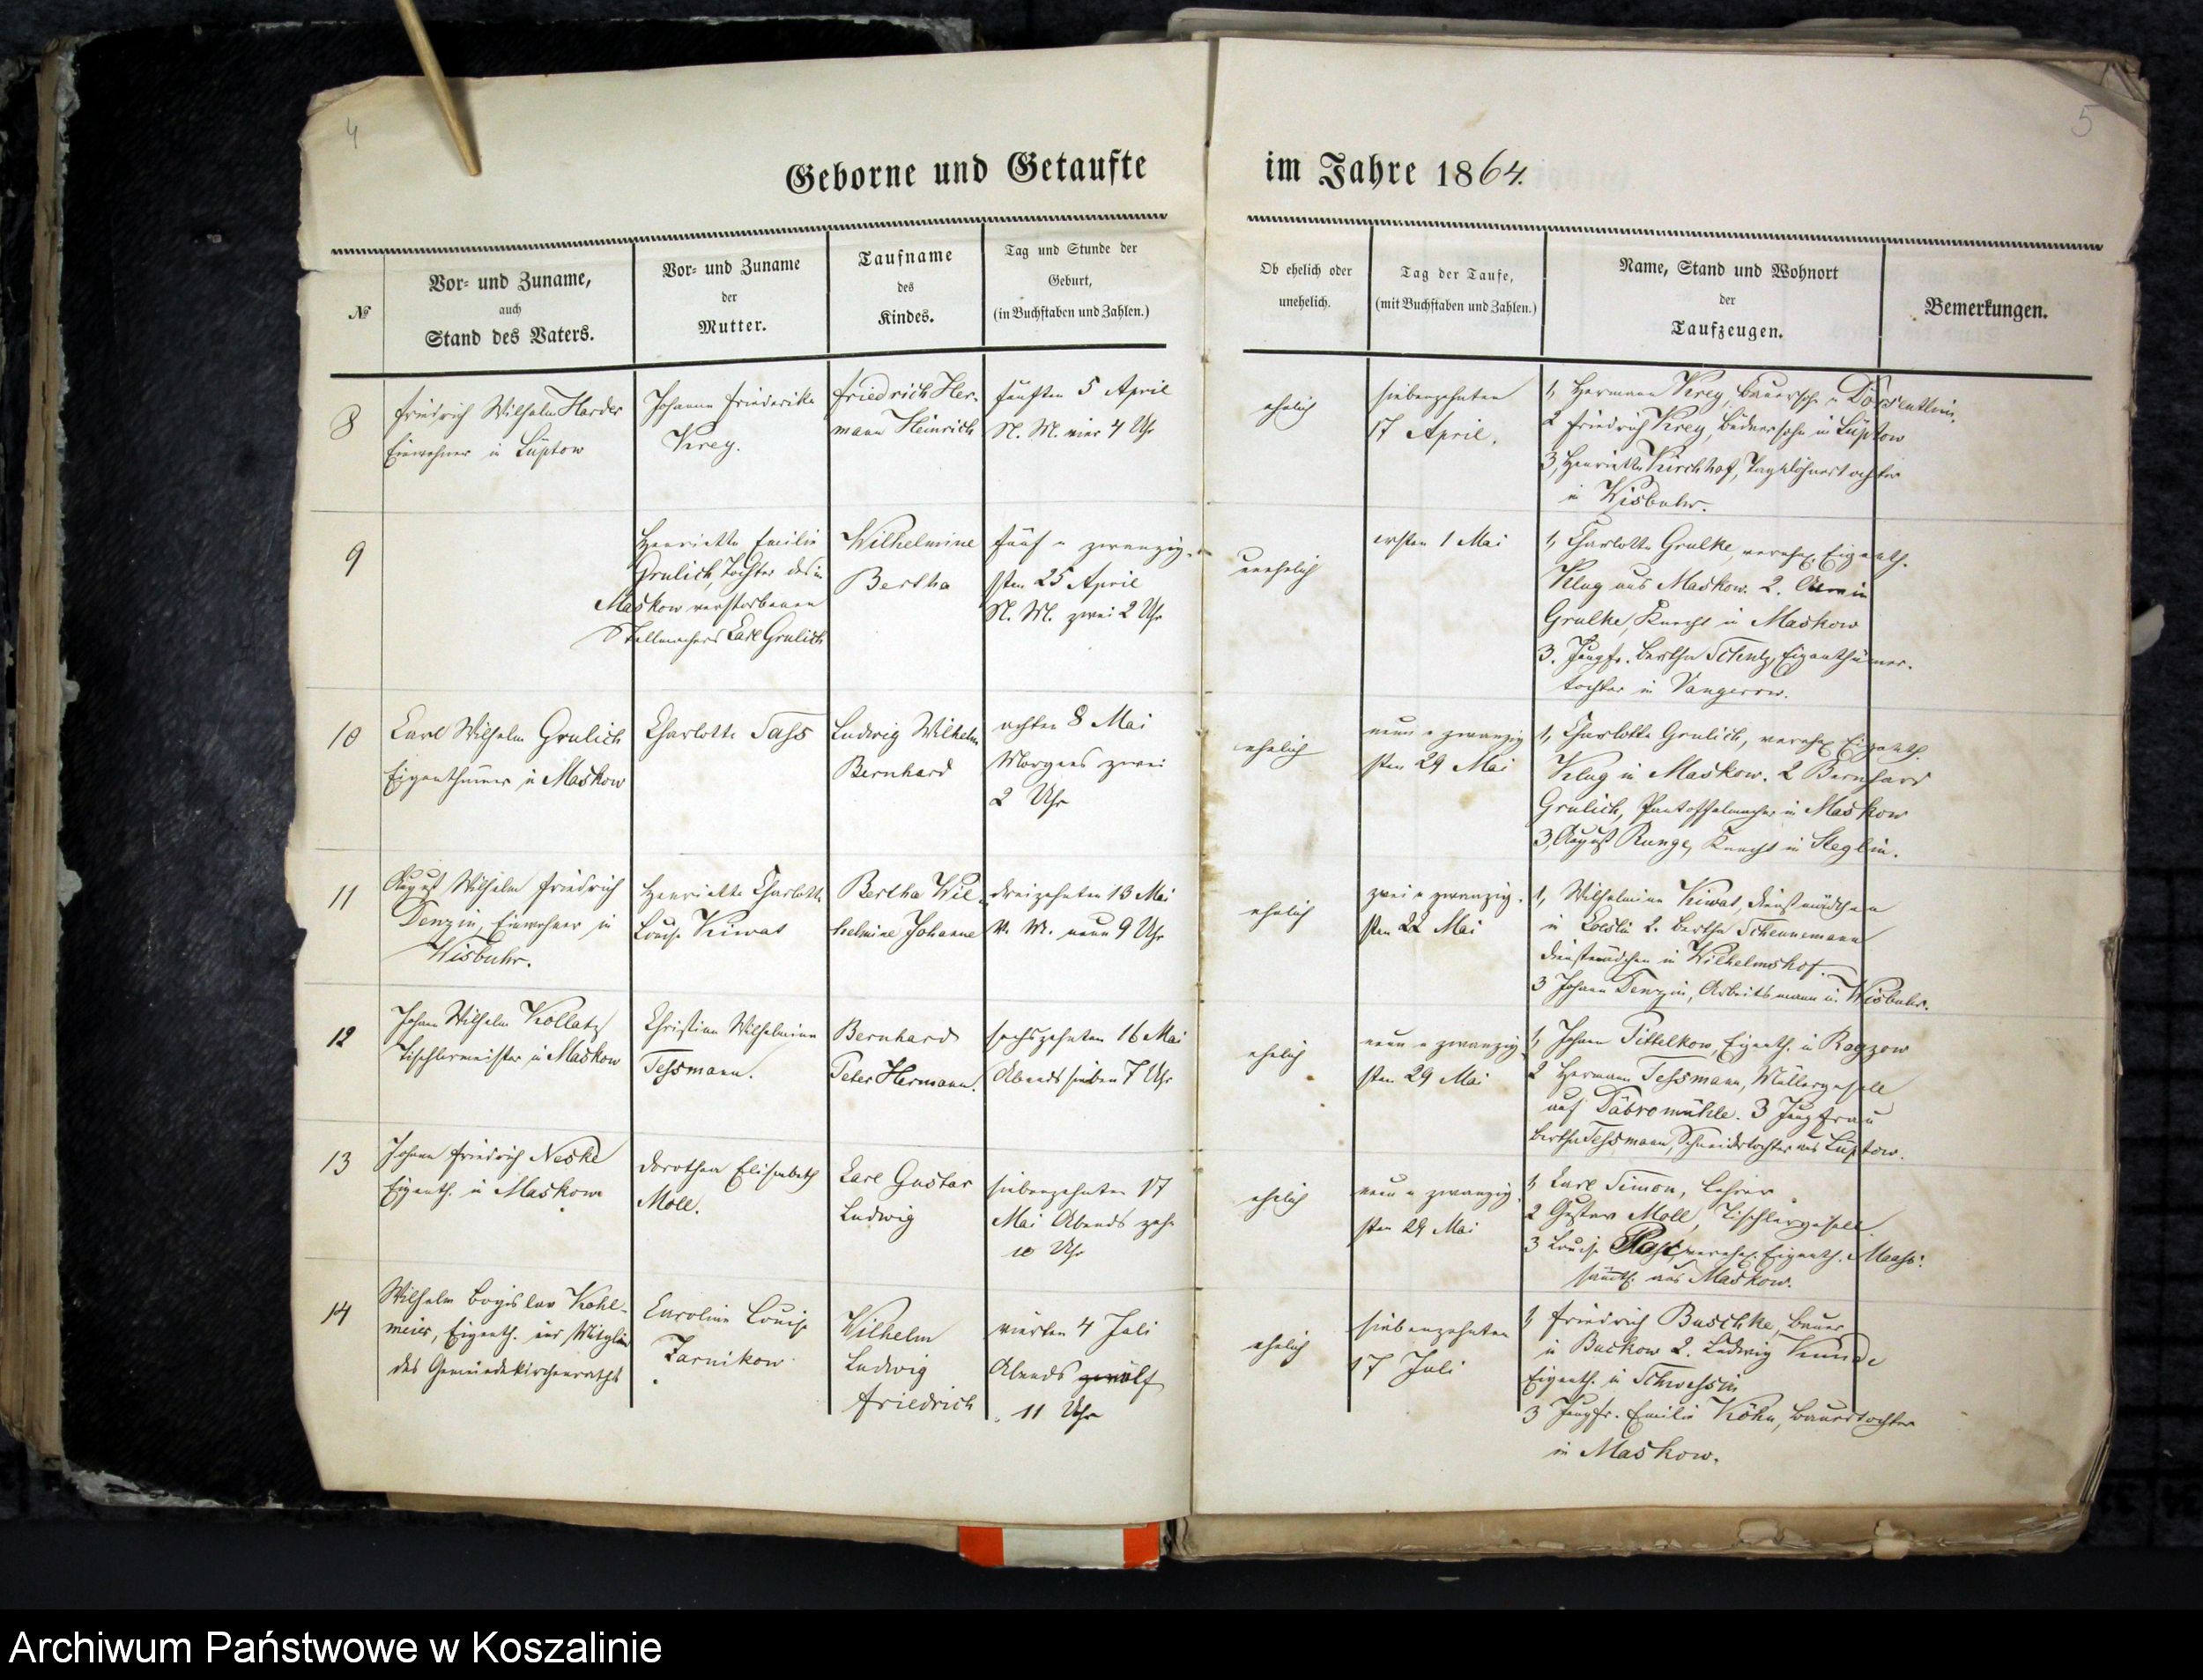 4
5
Geborne und Getaufte
im Jahre 1864.
№
Vor- und Zuname,
auch
Stand des Vaters.
Vor- und Zuname
der
Mutter.
Taufname
des
Kindes.
Tag und Stunde der
Geburt,
(in Buchstaben und Zahlen.)
Ob ehelich oder
unehelich.
Tag der Taufe,
(mit Buchstaben und Zahlen.)
Name, Stand und Wohnort
der
Taufzeugen.
Bemerkungen.
8
Friedrich Wilhelm Harder
Einwohner in Lüptow
Johanne Friederike
Krey.
Friedrich Her-
mann Heinrich
fünften 5 April
N. M. vier 4 Uhr
ehelich
siebenzehnten
17 April.
1, Hermann Krey, Bauersohn
2 Friedrich Krey, Büdnersohn in Lüptow
3, Henriette Kirchhof, Tagelöhnertochter
in Wisbuhr.
9
Henriette Emilie
Grulich, Tochter des in
Maskow verstorbenen
Stellmachers Carl Grulich
Wilhelmine
Bertha
fünf u zwanzig-
sten 25 April
N. M. zwei 2 Uhr
unehelich
ersten 1 Mai
1, Charlotte Grulke, verehel. Eigenth.
Klug aus Maskow. 2.
Grulke, Knecht in Maskow
3. Jungfr. Bertha Schulz, Eigenthümer-
tochter in Vangerow.
10
Carl Wilhelm Grulich
Eigenthümer in Maskow
Charlotte Sass
Ludwig Wilhelm
Bernhard
achten 8 Mai
Morgens zwei
2 Uhr
ehelich
neun u zwanzig
sten 29 Mai
1, Charlotte Grulich, verehel. Eigenth.
Klug in Maskow. 2 Bernhard
Grulich, Pantoffelmacher in Maskow
3, August Runge, Knecht in Steglin.
11
August Wilhelm Friedrich
Denzin, Einwohner in
Wisbuhr.
Henriette Charlotte
Louise Kiwat
Bertha Wil-
helmine Johanne
dreizehnten 13 Mai
V. M. neun 9 Uhr
ehelich
zwei u zwanzig-
sten 22 Mai
1, Wilhelmine Kiwat, Dienstmädchen
in Coeslin 2. Bertha Schennemann
Dienstmädchen in Wilhelmshof.
3 Johann Denzin, Arbeitsmann in Wisbuhr.
12
Johann Wilhelm Kollatz
Tischlermeister in Maskow
Christine Wilhelmine
Tessmann.
Bernhard
Peter Hermann.
sechszehnten 16 Mai
Abends sieben 7 Uhr
ehelich
neun u zwanzig
sten 29 Mai
1, Johann Pittelkow, Eigenth. in Rogzow
2 Hermann Tessmann, Müllergesell
auf Däbromühle. 3 Jungfrau
Bertha Tessmann, Schneidertochter aus Lüptow.
13
Johann Friedrich Neske
Eigenth. in Maskow
Dorothea Elisabeth
Moll.
Carl Gustav
Ludwig
siebenzehnten 17
Mai Abends zehn
10 Uhr
ehelich
neun u zwanzig
sten 29 Mai
1 Carl Simon, Lehrer
2 Gustav Moll, Tischlergesell
3 Louise verehel. Eigenth. Maass
sämtl. aus Maskow.
14
Wilhelm Bogislav Kohl-
meier, Eigenth. und Mitglied
des Gemeindekirchenraths
Caroline Louise
Zarnikow
Wilhelm
Ludwig
Friedrich
vierten 4 Juli
Abends zwölf
11 Uhr
ehelich
siebenzehnten
17 Juli
1 Friedrich Buschke, Bauer
in Buckow 2. Ludwig Kunde
Eigenth. in Schwessin
3 Jungfr. Emilie Köhn, Bauertochter
in Maskow.
Archiwum Państwowe w Koszalinie